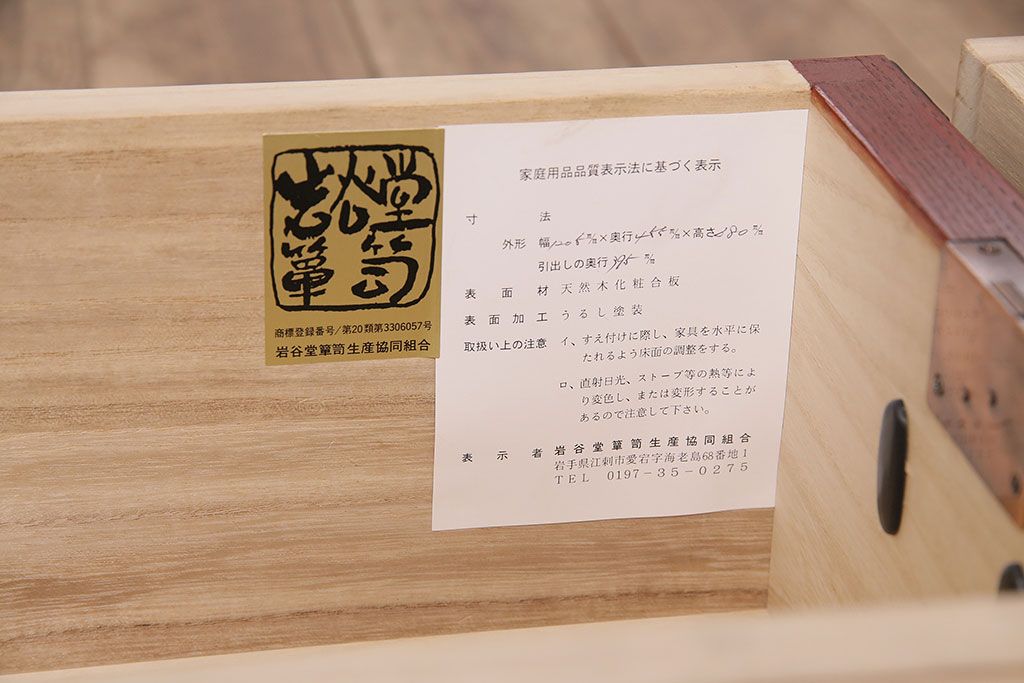 岩谷堂
箪笥
商標登録番号/第20類第3306057号
岩谷堂箪笥生産協同組合
家庭用品品質表示法に基づく表示
寸法
外形 幅 ㎜×奥行455㎜×高さ ㎜
引出しの奥行395㎜
表面材 天然木化粧合板
表面加工 うるし塗装
取扱い上の注意 イ、すえ付けに際し、家具を水平に保
たれるよう床面の調整をする。
ロ、直射日光、ストーブ等の熱等によ
り変色し、または変形することが
あるので注意して下さい。
表示者 岩谷堂箪笥生産協同組合
岩手県江刺市愛宕字海老島68番地1
TEL 0197-35-0275